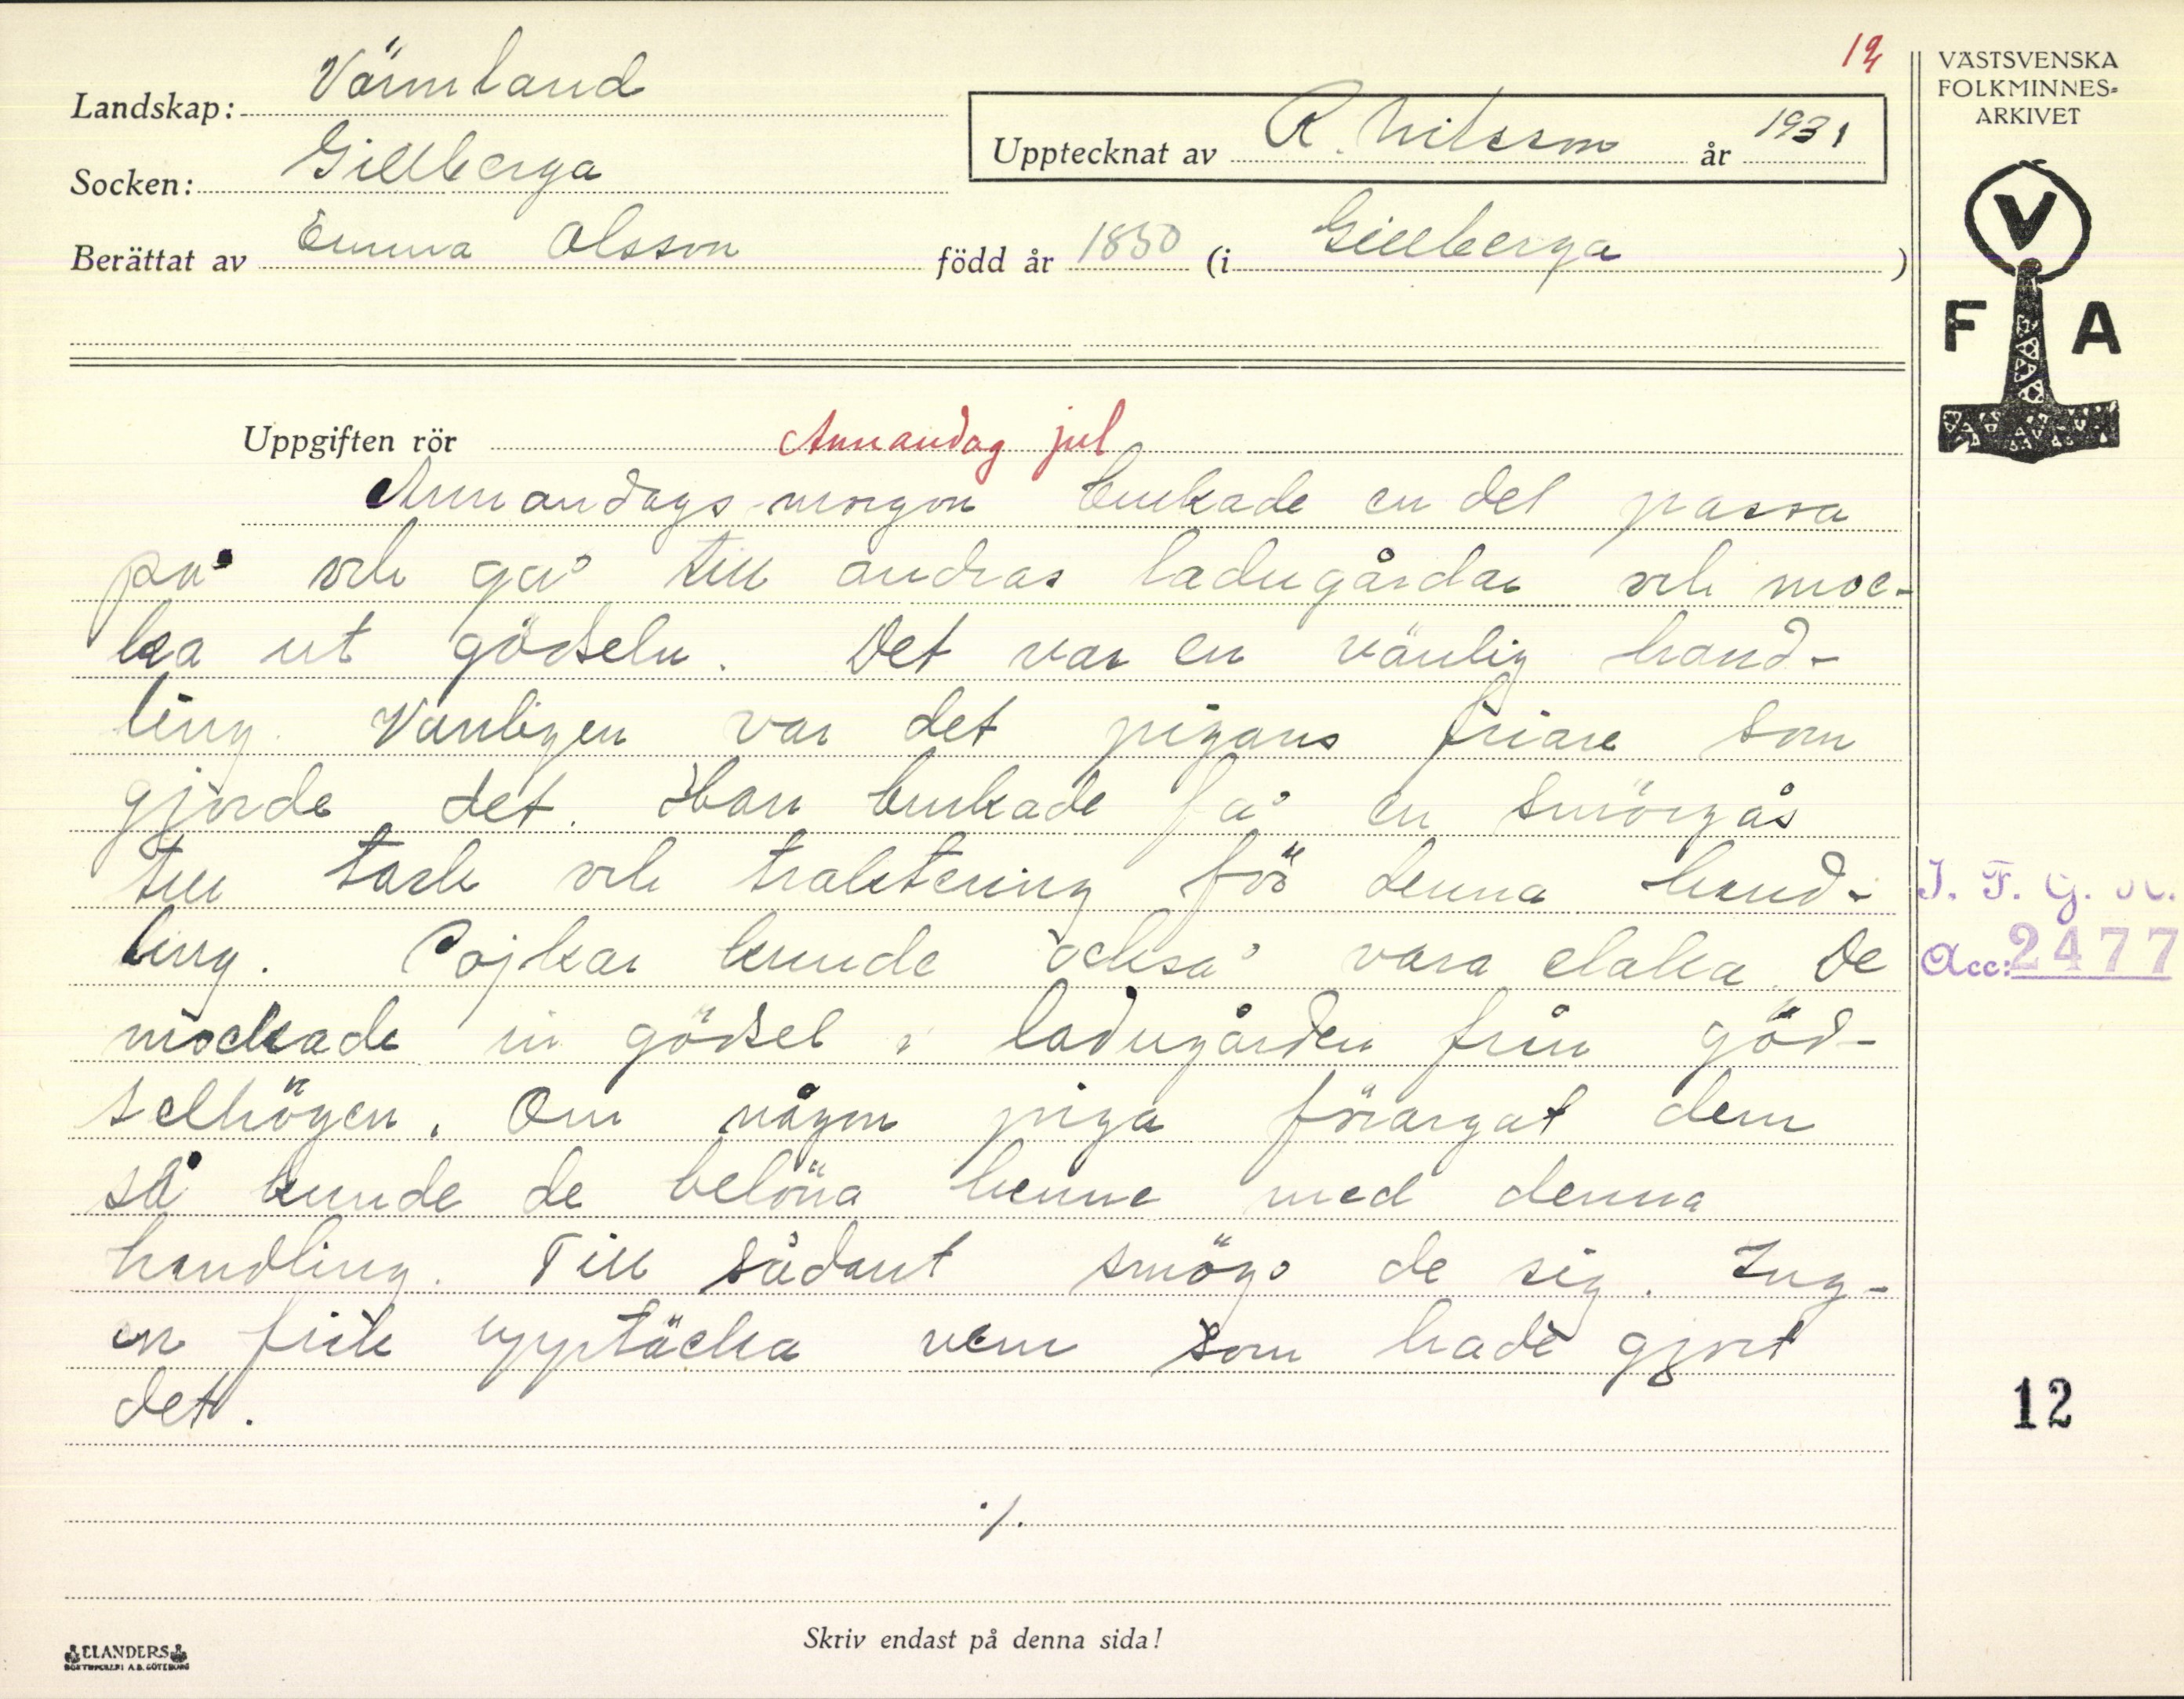 12
Landskap: Värmland
Upptecknat av R. Nilsson år 1931
Socken: Gillberga
Berättat av Emma Olsson född år 1850 (i Gillberga)
Uppgiften rör Annandag jul
Annandags morgon brukade en del passa
på och gå till andras ladugårdar och moc-
ka ut gödseln. Det var en vänlig hand-
ling. Vanligen var det pigans friare som
gjorde det. Han brukade få en smörgås
till tack och traktering för denna hand-
ling. Pojkar kunde också vara elaka. De
mockade in gödsel i ladugården från göd-
selhögen. Om någon piga förargat dem
så kunde de belöna henne med denna
handling. Till sådant smögo de sig. Ing-
en fick upptäcka vem som hade gjort
det.
./.
Skriv endast på denna sida!
ELANDERS
BOKTRYCKERI A.B. GÖTEBORG
VÄSTSVENSKA
FOLKMINNES-
ARKIVET
V
F A
I. F. G. H.
Acc: 2477
12